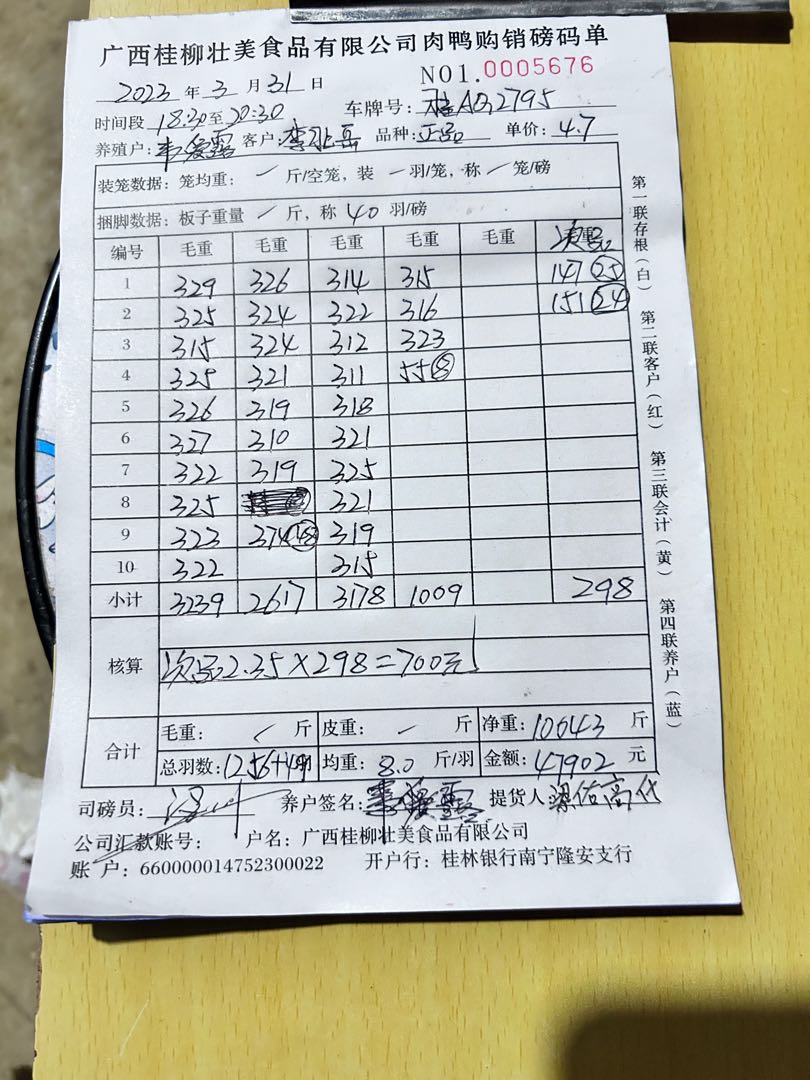 广西桂柳壮美食品有限公司肉鸭购销磅码单
2023 年 3 月 31 日 NO1.0005676
时间段 18:30至20:30 车牌号: 桂AQ2795
养殖户: 客户: 李 岳 品种: 正品 单价: 4.7
装笼数据: 笼均重: / 斤/空笼, 装 一 羽/笼, 称 / 笼/磅
捆脚数据: 板子重量 / 斤, 称 40 羽/磅
编号 毛重 毛重 毛重 毛重 毛重 次品
1 329 326 314 315 147 25
2 325 324 322 316 151 24
3 315 324 312 323
4 325 321 311 55 8
5 326 319 318
6 327 310 321
7 322 319 325
8 325 321
9 323 374 48 319
10 322 315
小计 3239 2617 3178 1009 298
核算 次品2.35×298=700元
合计 毛重: / 斤 皮重: / 斤 净重: 10043 斤
总羽数: 1256+49 均重: 8.0 斤/羽 金额: 47902 元
司磅员: 养户签名: 提货人
公司汇款账号: 户名: 广西桂柳壮美食品有限公司
账 户: 660000014752300022 开户行: 桂林银行南宁隆安支行
第一联存根(白) 第二联客户(红) 第三联会计(黄) 第四联养户(蓝)